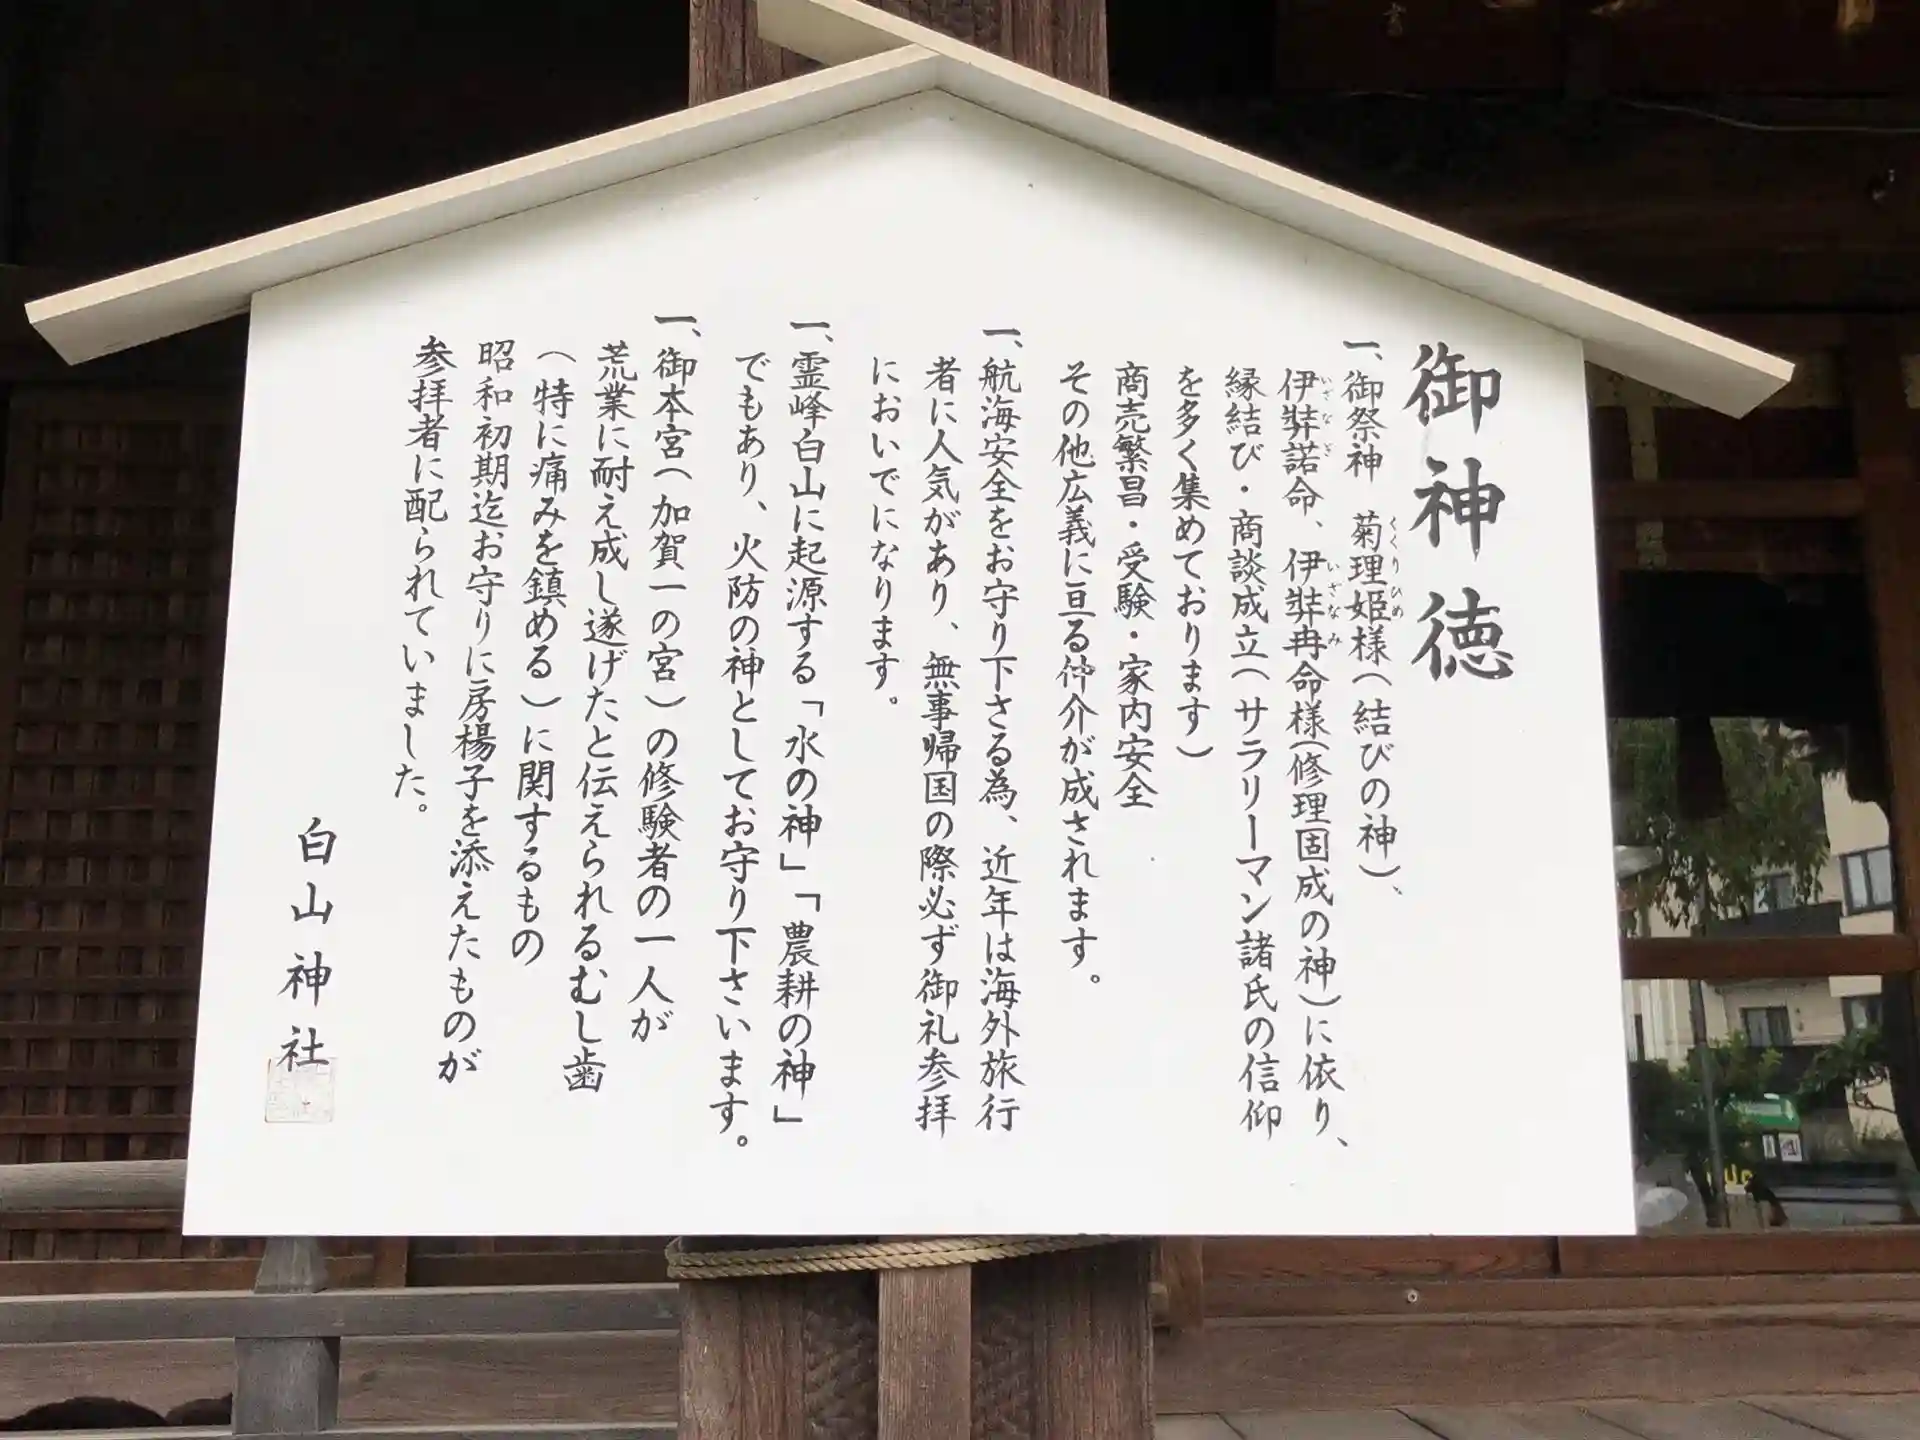 御神徳
一、御祭神 菊理姫様(結びの神)、
くくりひめ
伊弉諾命、伊弉冉命様(修理固成の神)に依り、
いざなぎ いざなみ
縁結び・商談成立(サラリーマン諸氏の信仰
を多く集めております)
商売繁昌・受験・家内安全
その他広義に亘る仲介が成されます。
一、航海安全をお守り下さる為、近年は海外旅行
者に人気があり、無事帰国の際必ず御礼参拝
においでになります。
一、霊峰白山に起源する「水の神」「農耕の神」
でもあり、火防の神としてお守り下さいます。
一、御本宮(加賀一の宮)の修験者の一人が
荒業に耐え成し遂げたと伝えられるむし歯
(特に痛みを鎮める)に関するもの
昭和初期迄お守りに房楊子を添えたものが
参拝者に配られていました。
白山神社